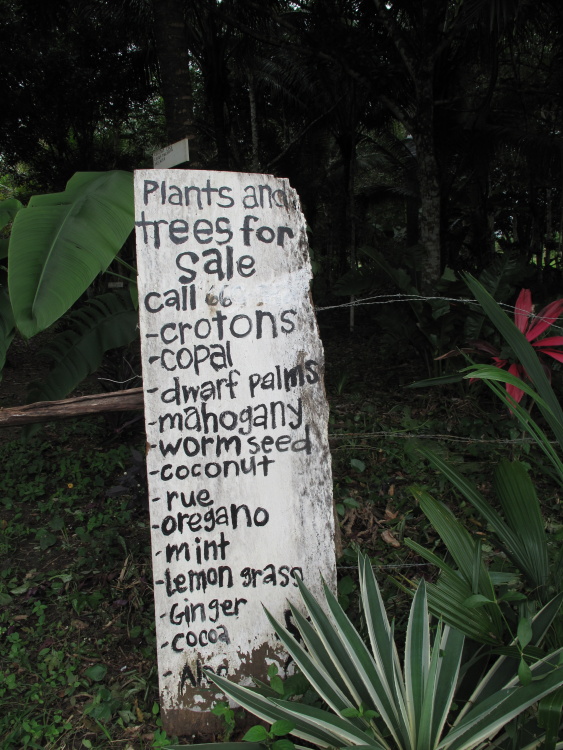 Plants and
trees for
sale
call 66
-crotons
-copal
-dwarf palms
-mahogany
-worm seed
-coconut
-rue
-oregano
-mint
-lemon grass
-Ginger
-cocoa